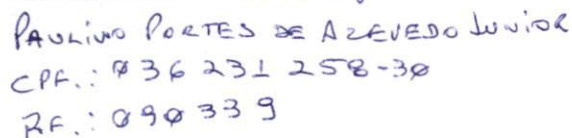 PAULINO PORTES DE AZEVEDO JUNIOR
CPF.: 036 231 258-30
RF.: 090339